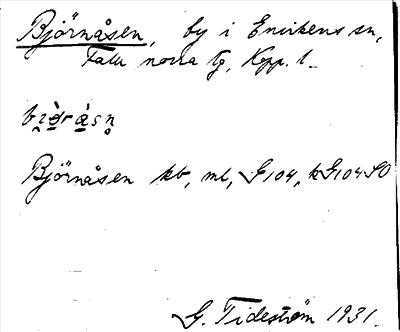 Björnåsen, by i Envikens sn,
Falu norra tg, Kopp. l.
Björnåsen kb, ml, G104, kG104SO
G. Tideström 1931